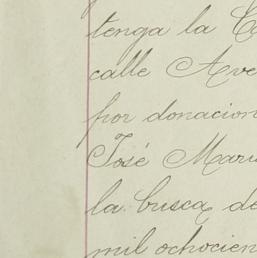 tenga la
calle Ave
por donacion
José Maria
la busca de
mil ochocien